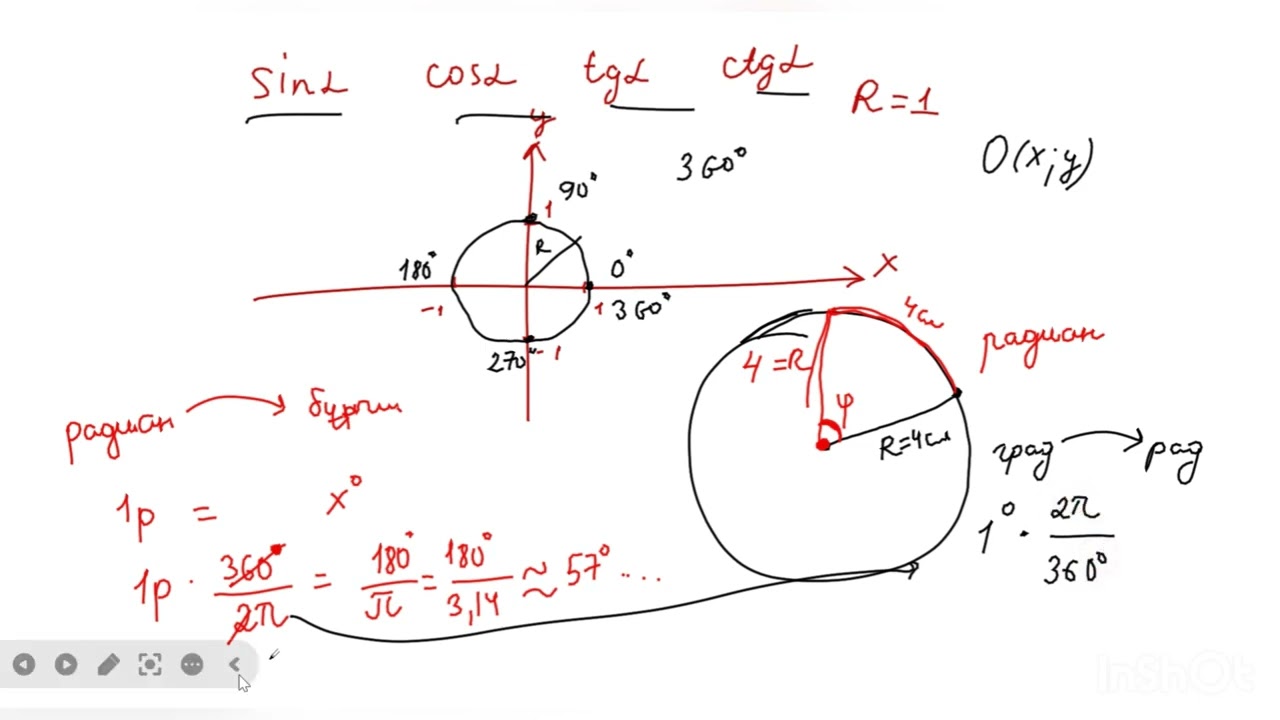 sinα cosα tgα ctgα R = 1
y
360° O(x;y)
90°
1
R
180° 0° x
-1 1 360°
270° -1
4см радиан
4 = R
φ
R = 4см
радиан → бурчак
град → рад
1р = x°
1° · 2π/360°
1р · 360°/2π = 180°/π = 180°/3,14 ≈ 57° ....
InShOt